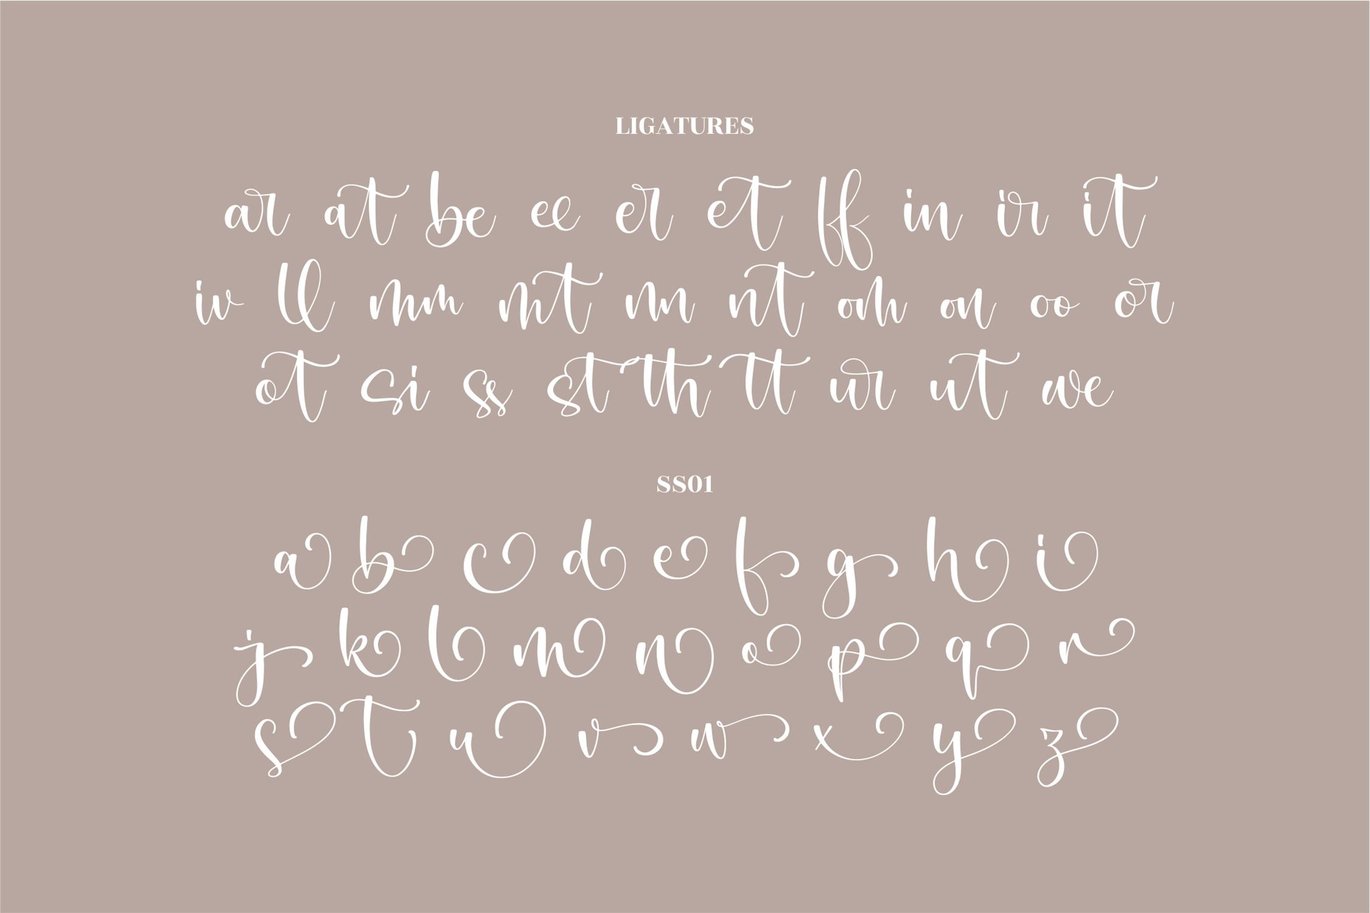 LIGATURES
ar at be ee er et ff in ir it
iv ll mm mt nn nt om on oo or
ot si ss st th tt ur ut we
SS01
a b c d e f g h i
j k l m n o p q r
s t u v w x y z